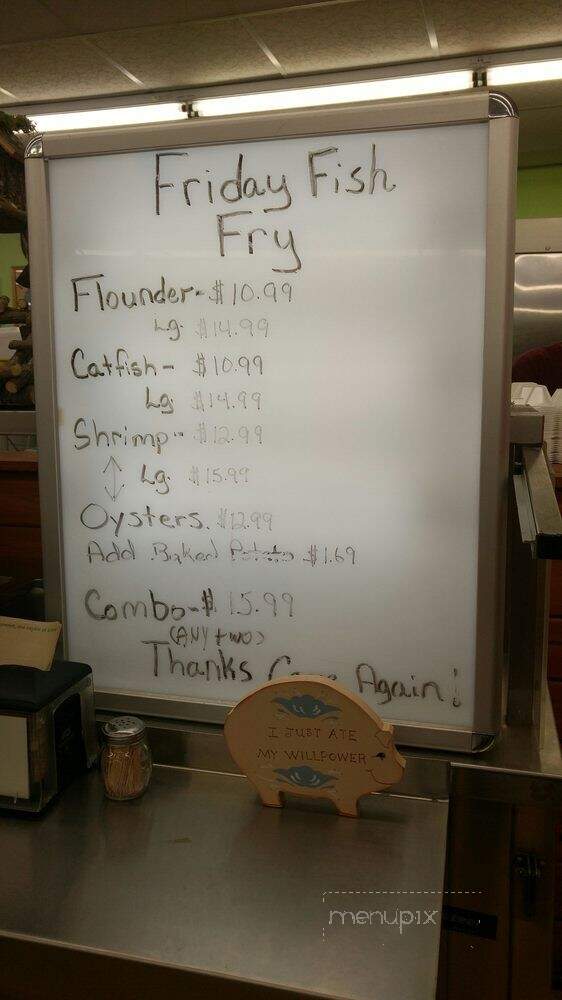 Friday Fish
Fry
Flounder- $10.99
Lg. $14.99
Catfish - $10.99
Lg $14.99
Shrimp - $12.99
Lg. $15.99
Oysters. $12.99
Add Baked Potato $1.69
Combo - $15.99
(ANY two)
Thanks Come Again!
I JUST ATE
MY WILLPOWER
menupix